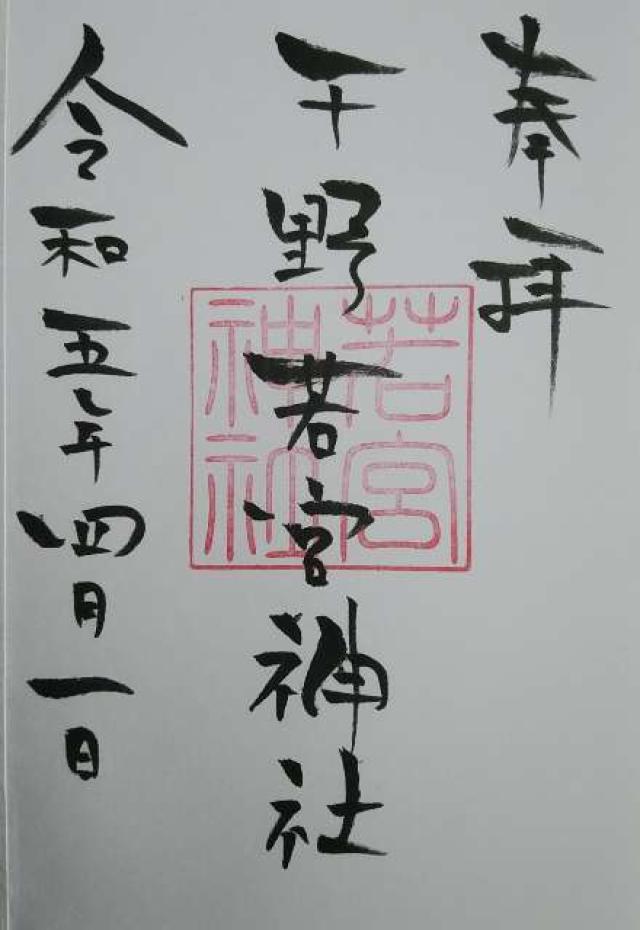 奉拝
干野若宮神社
若宮
神社
令和五年四月一日